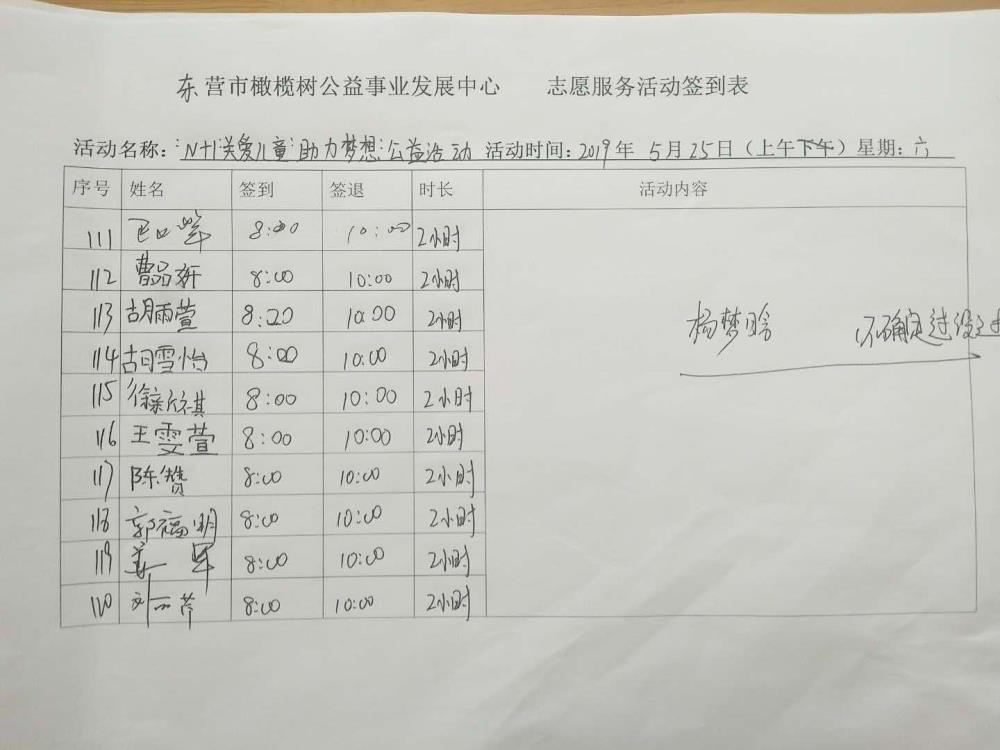 东营市橄榄树公益事业发展中心 志愿服务活动签到表
活动名称：“N+1”关爱儿童“助力梦想”公益活动 活动时间：2019年 5月25日（上午下午）星期：六
序号 姓名 签到 签退 时长 活动内容
111 8:00 10:00 2小时
112 曹品妍 8:00 10:00 2小时
113 胡雨萱 8:20 10:00 2小时
114 胡雪怡 8:00 10:00 2小时
115 徐新祺 8:00 10:00 2小时
116 王雯萱 8:00 10:00 2小时
117 陈赞 8:00 10:00 2小时
118 郭福明 8:00 10:00 2小时
119 姜军 8:00 10:00 2小时
110 刘芹 8:00 10:00 2小时
杨梦晗 不确定过没过